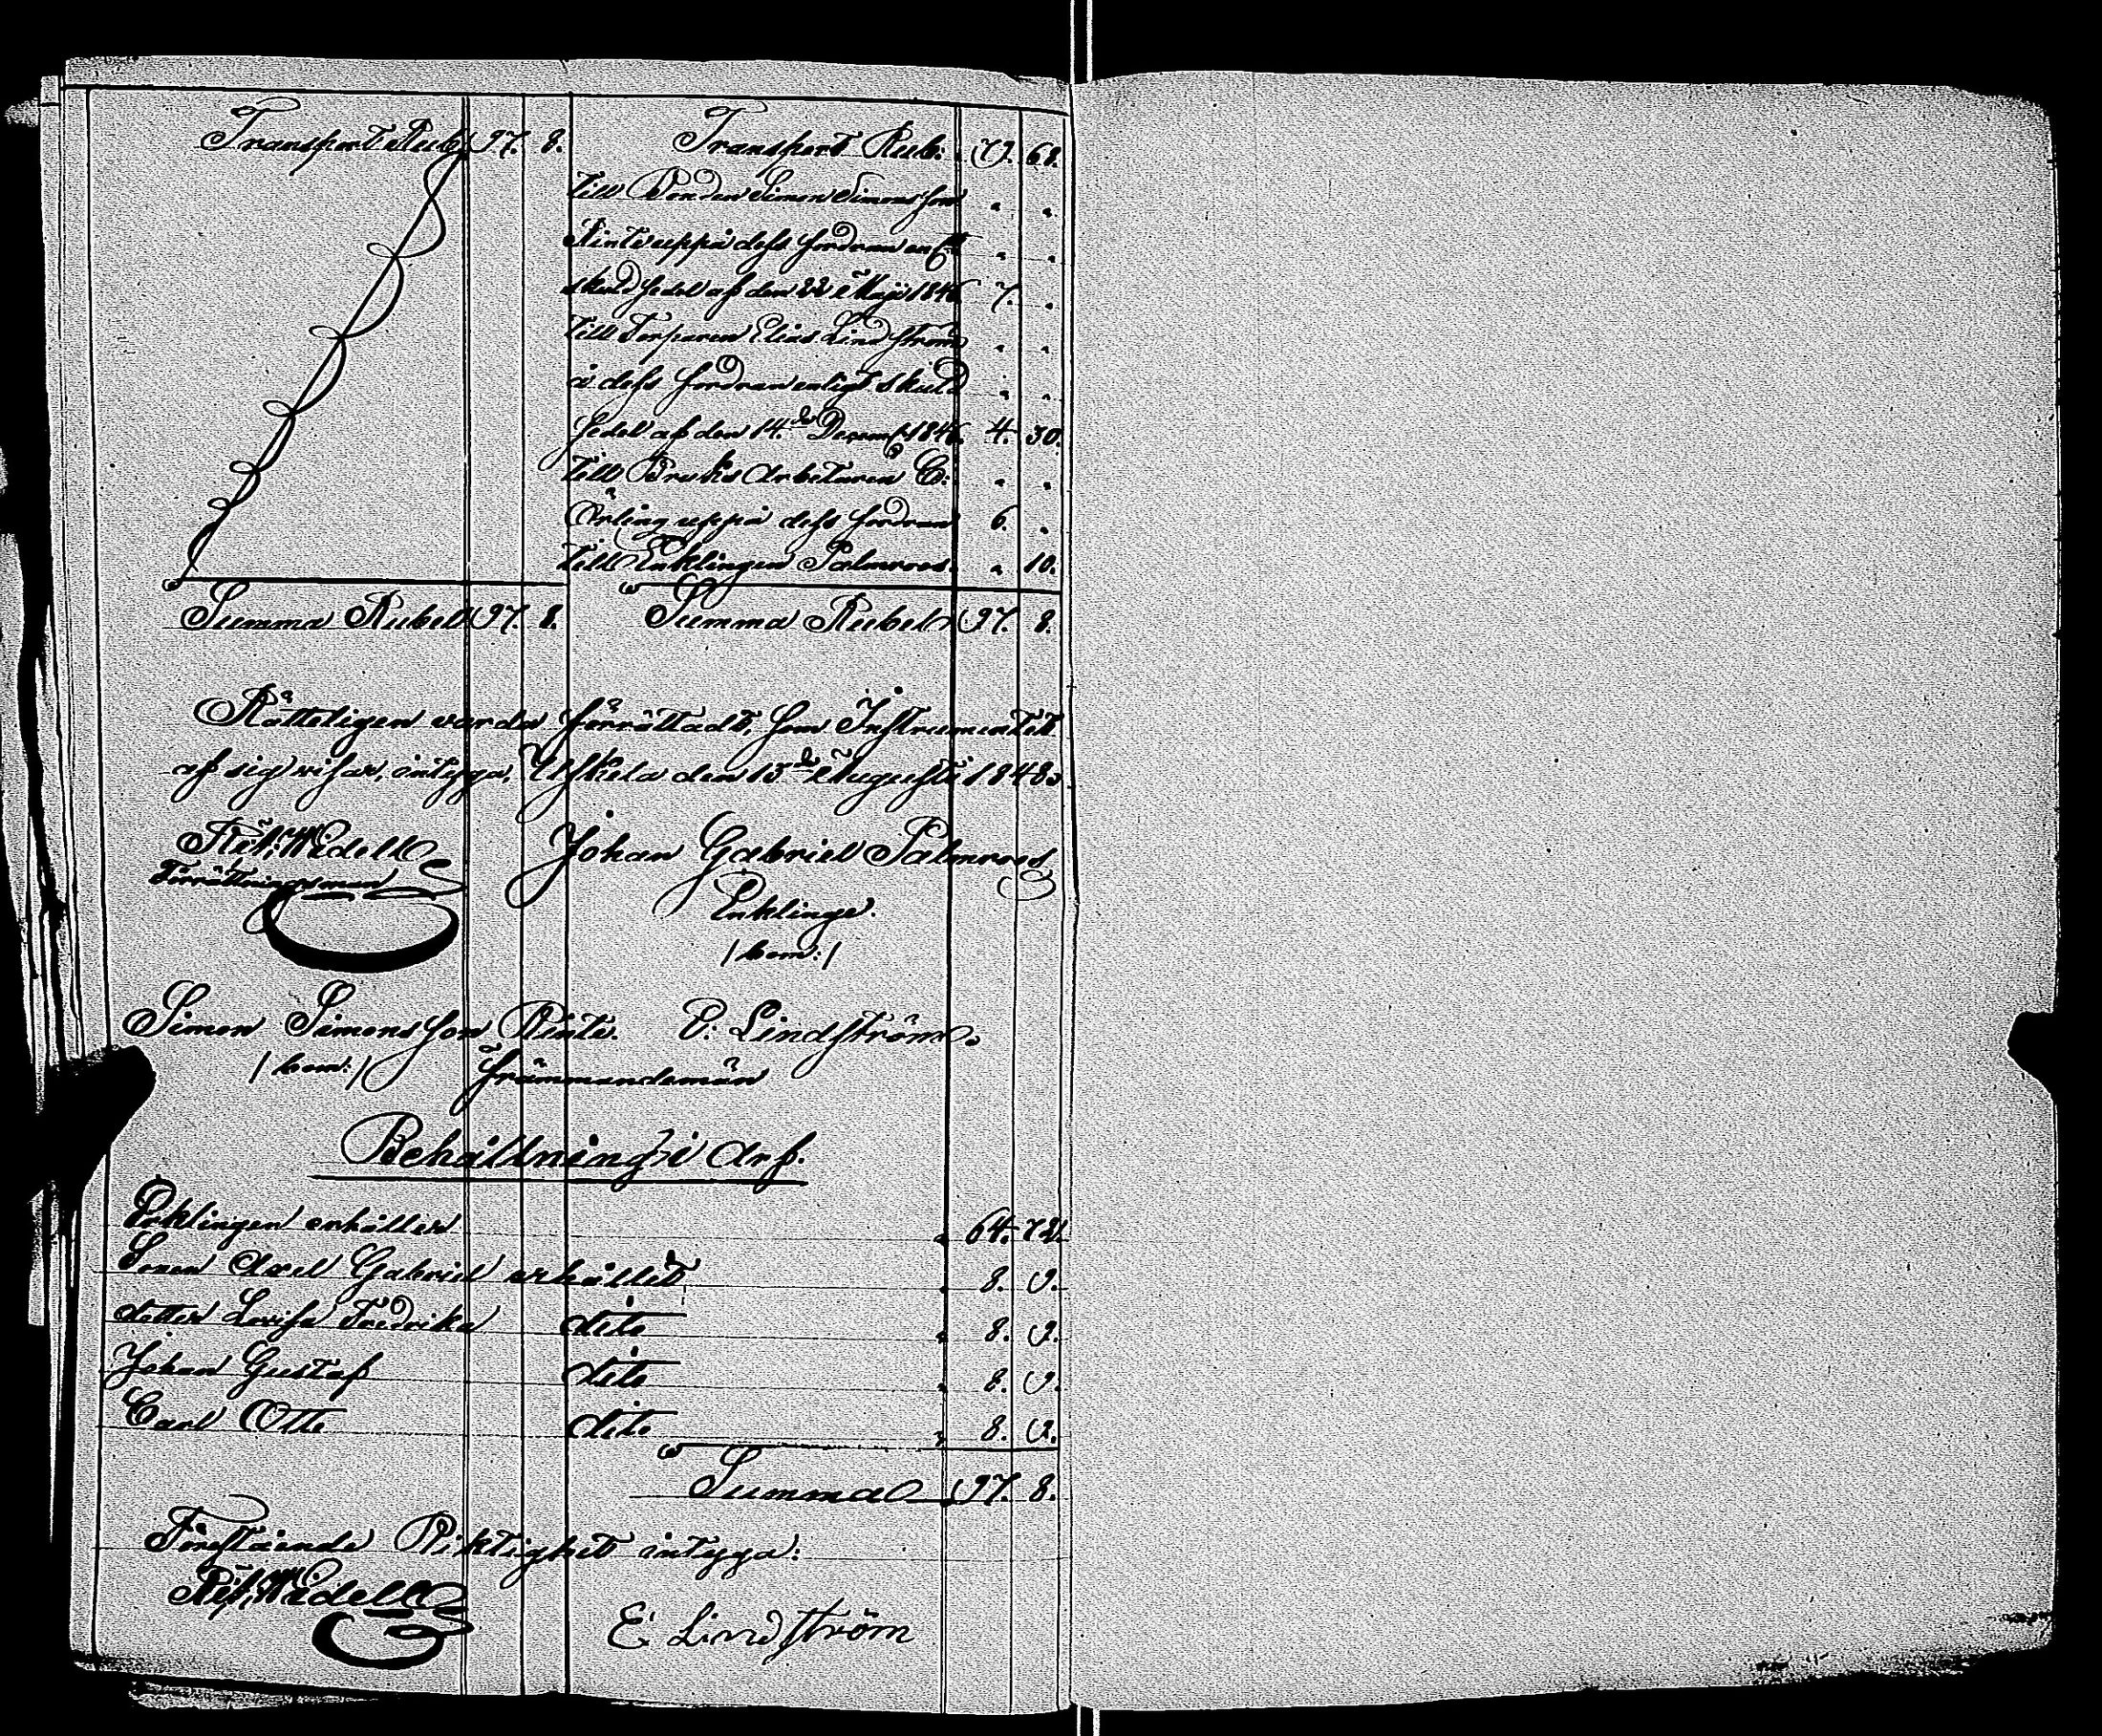 Transport Rub. 97. 8.
Transport Rub. 79. 68.
till Bonden Simon Simonsson
Rinti uppå dess fordran en
skuldsedel af den 22 Maji 1846 7.
till Torparen Elias Lindström
å dess fordran enligt skuld
sedel af den 14.de Decemb. 1846. 4. 30.
till Bruks Arbetaren C:
Örling uppå dess fordran 6.
till Enklingen Palmroos. 10.
Summa Rubel 97. 8.
Summa Rubel 97. 8.
Rätteligen varda förrättadt, som Instrumentet
af sig visar, intyga, den 15de Augusti 1848.
Wedell
Förrättningsman
Johan Gabriel Palmroos
Enklinge.
/bom:/
Simon Simonsson Rinti. E: Lindström.
/bom:/ främmandemän
Behållning i Arf.
Enklingen erhåller 64. 72.
Sonen Axel Gabriel erhållit 8. 9.
dotter Lovisa Fredrika dito 8. 9.
Johan Gustaf dito 8. 9.
Carl Otto dito 8. 9.
Summa 97. 8.
Förestående Riktighet intyga:
Wedell
E Lindström